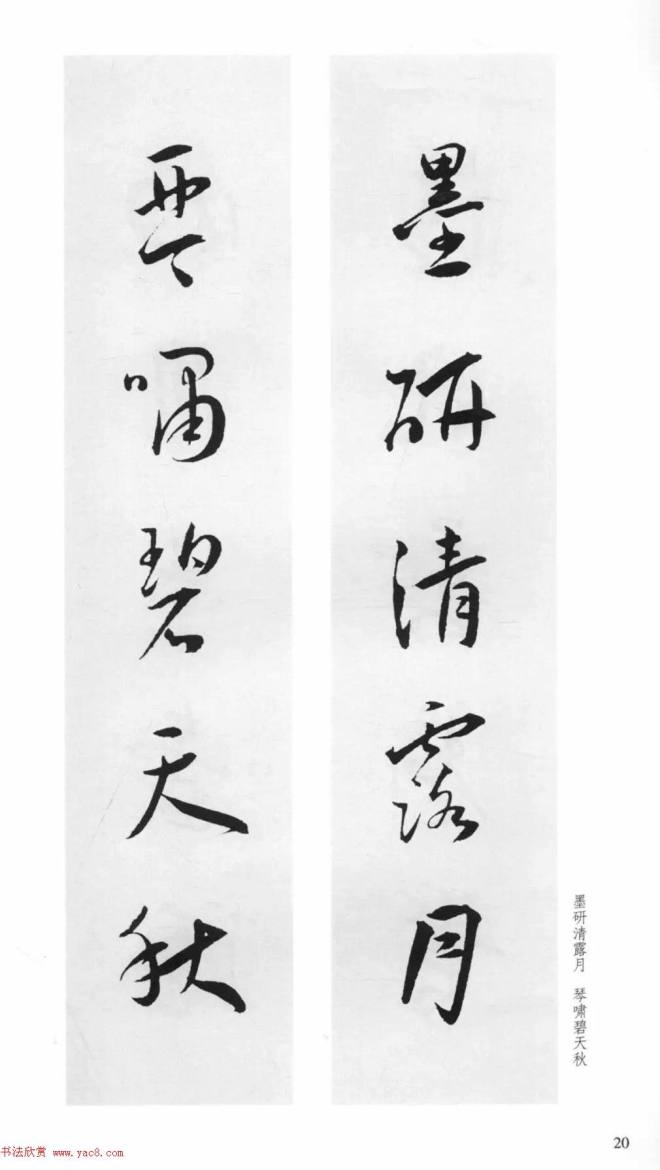 墨研清露月
琴啸碧天秋
墨研清露月　琴啸碧天秋
20
书法欣赏 www.yac8.com